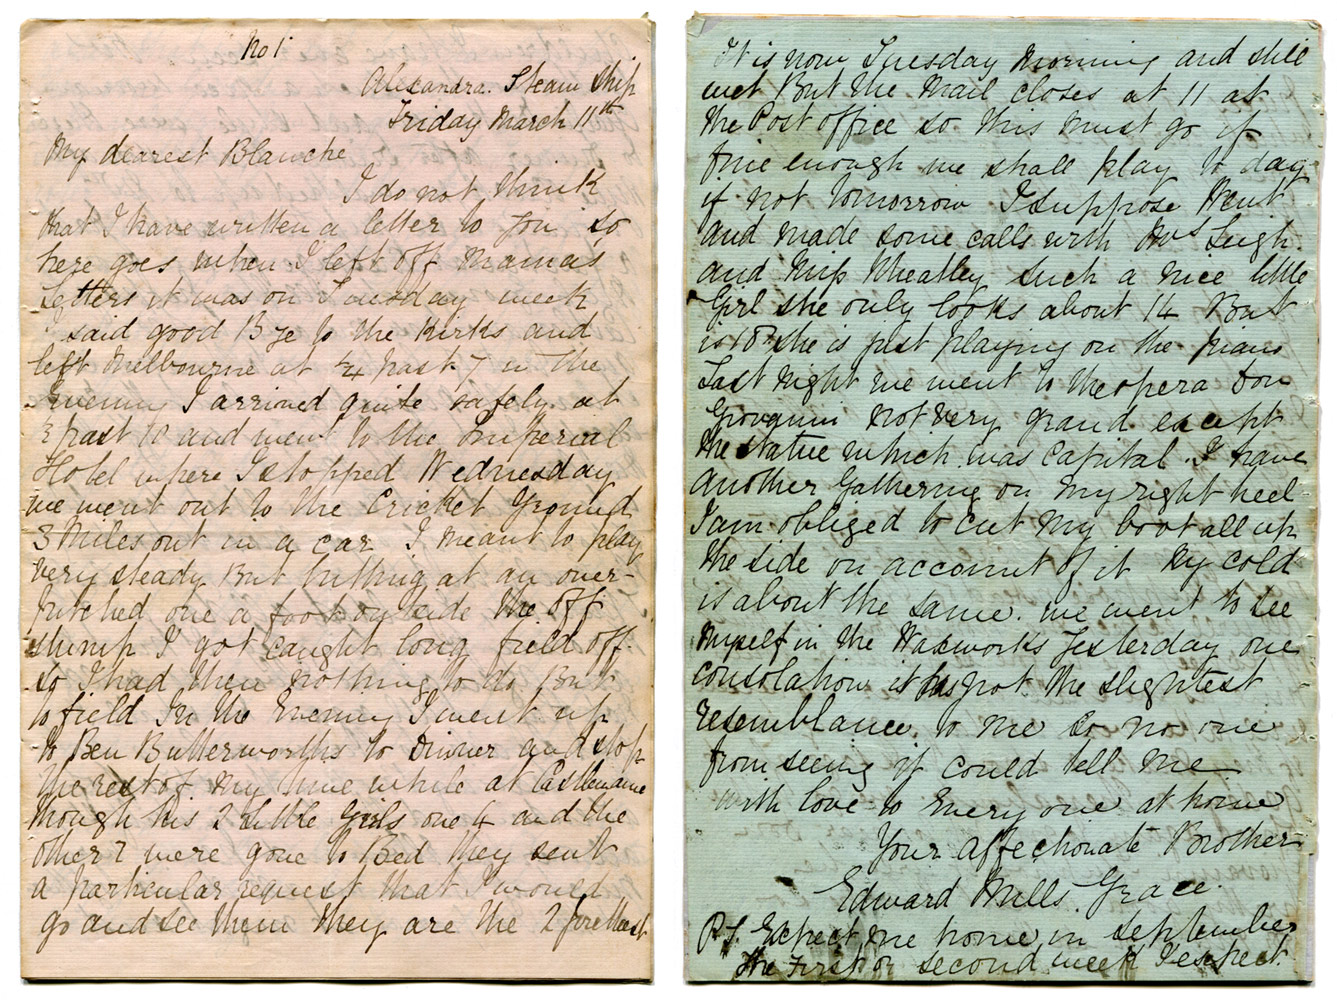 No 1
Alexandra. Steam Ship
Friday March 11th
My dearest Blanche
I do not think
that I have written a letter to you so
here goes when I left off Mamas
Letters it was on Tuesday week
I said good Bye to the Kirks and
left Melbourne at ¼ past 7 in the
Evening I arrived quite safely at
½ past 10 and went to the Imperial
Hotel where I stopped Wednesday
we went out to the Cricket Ground
3 Miles out in a car I meant to play
very steady But hitting at an over-
pitched one a foot outside the off
stump I got caught long field off.
so I had then nothing to do But
to field In the Evening I went up
to Ben Butterworths to Dinner and stop
the rest of my time while at Castlemaine
though his 2 Little Girls one 4 and the
other 7 were gone to Bed they sent
a particular request that I would
go and see them they are the 2 forettiest
It is now Tuesday Morning and still
wet But the Mail closes at 11 at
the Post office so this must go if
fine enough we shall play to day
if not tomorrow I suppose Went
and made some calls with Mrs Leigh
and Miss Wheatley such a nice little
Girl she only looks about 14 But
is 18 she is just playing on the piano
Last night we went to the opera Don
Giovanni not very grand except
the statue which was Capital. I have
another Gathering on my right heel
I am obliged to cut my boot all up
the side on account of it My cold
is about the same. we went to see
myself in the Waxworks Yesterday one
consolation it has not the slightest
resemblance to me so no one
from seeing it could tell me
with love to Every one at home
Your affectionate Brother
Edward Mills Grace.
P.S. Expect me home in September
the First or second week I expect.